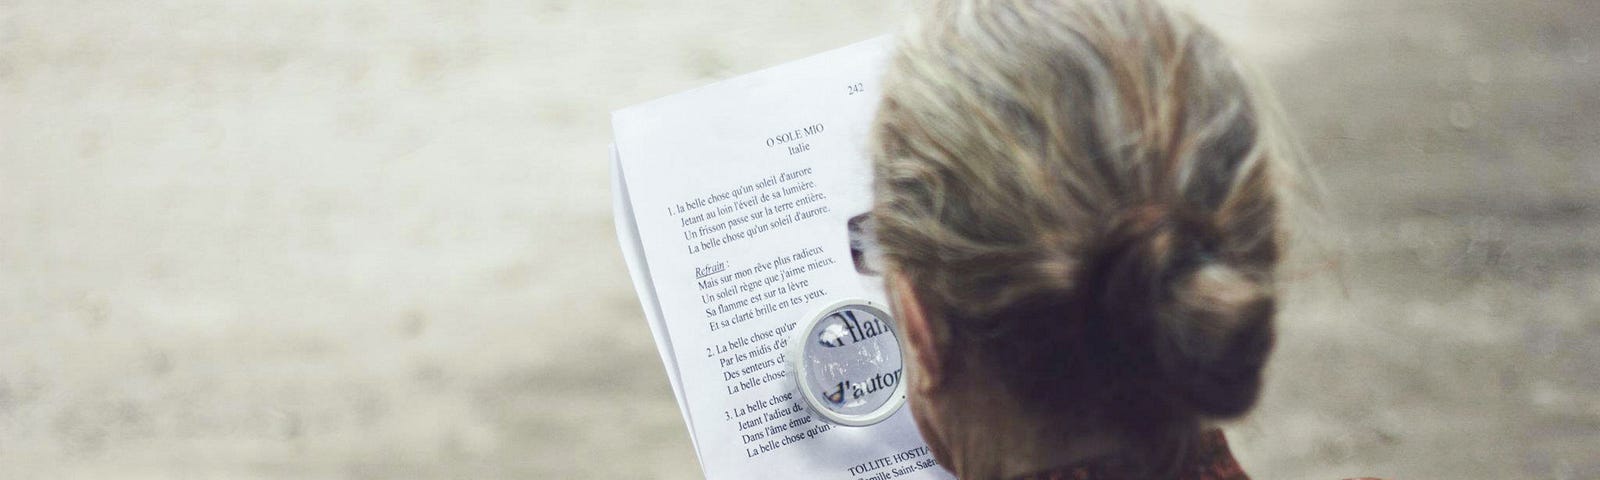 242
O SOLE MIO
Italie
1. la belle chose qu'un soleil d'aurore
Jetant au loin l'éveil de sa lumière.
Un frisson passe sur la terre entière,
La belle chose qu'un soleil d'aurore.
Refrain :
Mais sur mon rêve plus radieux
Un soleil règne que j'aime mieux.
Sa flamme est sur ta lèvre
Et sa clarté brille en tes yeux.
2. La belle chose qu'un
Par les midis d'ét
Des senteurs ch
La belle chose
flan
d'autor
3. La belle chose
Jetant l'adieu du
Dans l'âme émue
La belle chose qu'un
TOLLITE HOSTIA
Camille Saint-Saën